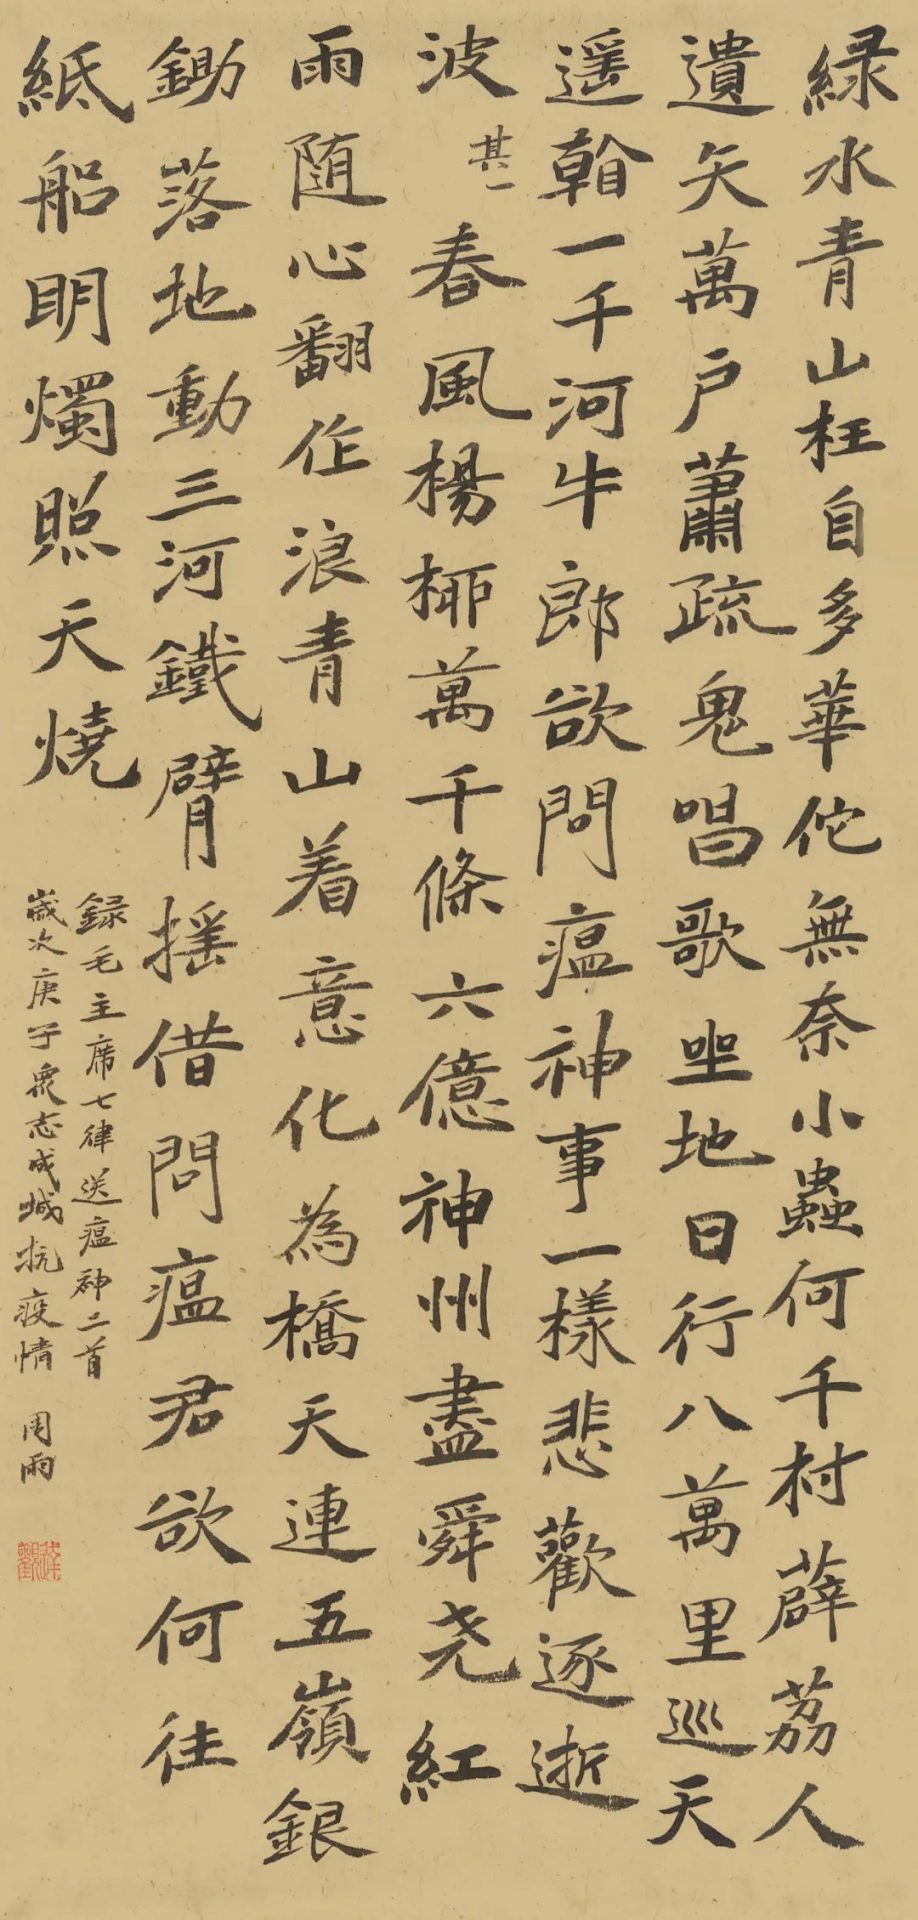 緑水青山枉自多華佗無奈小蟲何千村薜荔人
遺矢萬戶蕭疏鬼唱歌坐地日行八萬里巡天
遥看一千河牛郎欲問瘟神事一樣悲歡逐逝
波其一春風楊栁萬千條六億神州盡舜尧紅
雨随心翻作浪青山着意化為橋天連五嶺銀
鋤落地動三河鐵臂揺借問瘟君欲何往
紙船明燭照天燒
録毛主席七律送瘟神二首
歲次庚子衆志成城抗疫情 周雨